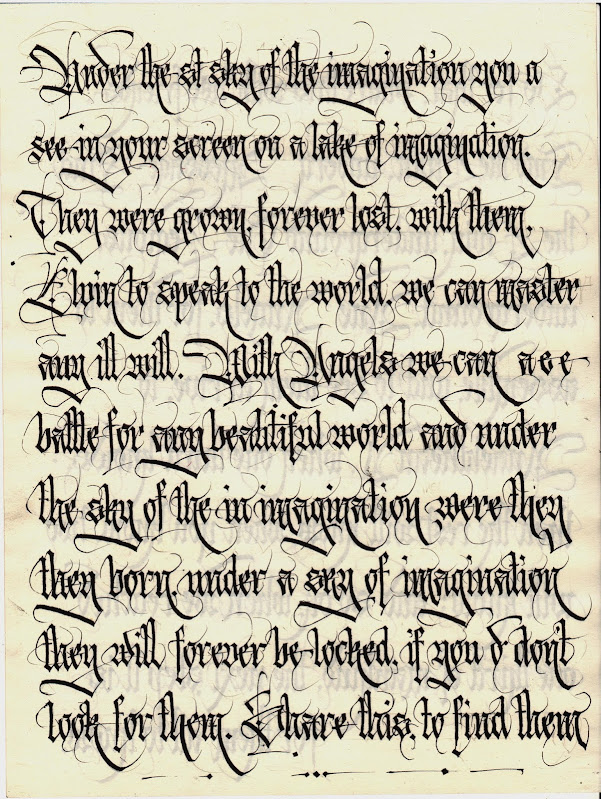 Under the st sky of the imagination you a
see in your screen on a lake of imagination.
They were grown. forever lost. with them.
Elvin to speak to the world. we can master
any ill will. With Angels we can a e e
battle for any beautiful world and under
the sky of the in imagination were they
then born. under a sky of imagination
they will forever be locked. if you d don't
look for them. Share this. to find them